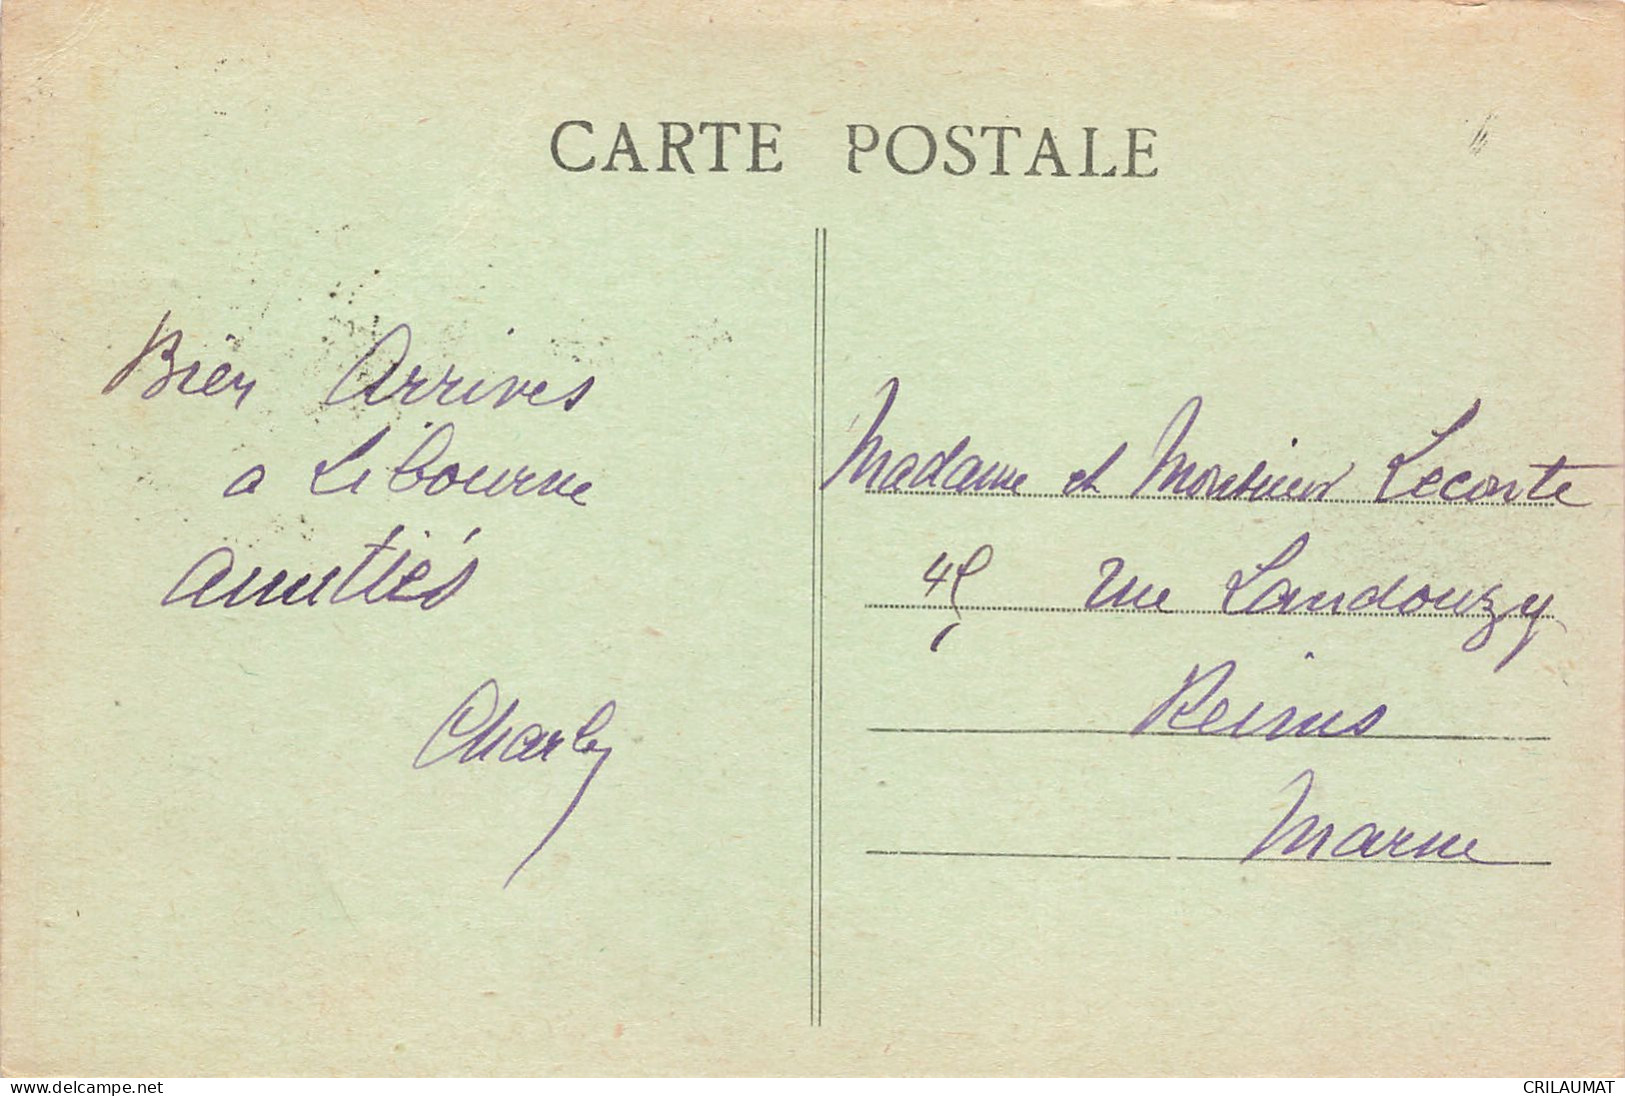 CARTE POSTALE
Bien Arrives
a Libourne
amitiés
Charly
Madame et Monsieur Leconte
45 rue Landouzy
Reims
Marne
www.delcampe.net
CRILAUMAT